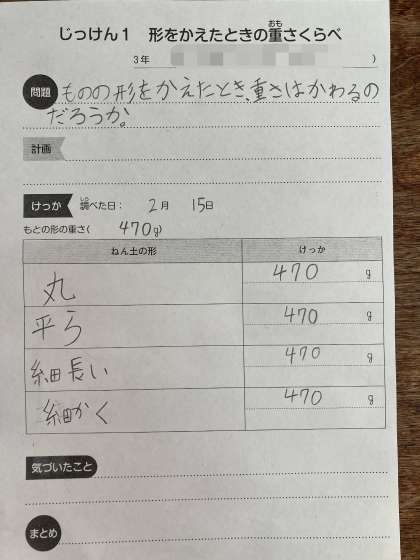 じっけん1 形をかえたときの重さくらべ
おも
3年 )
問題 ものの形をかえたとき、重さはかわるの
だろうか。
計画
けっか 調べた日: 2月 15日
しら
もとの形の重さ( 470g)
ねん土の形 けっか
丸 470 g
平ら 470 g
細長い 470 g
細かく 470 g
気づいたこと
まとめ